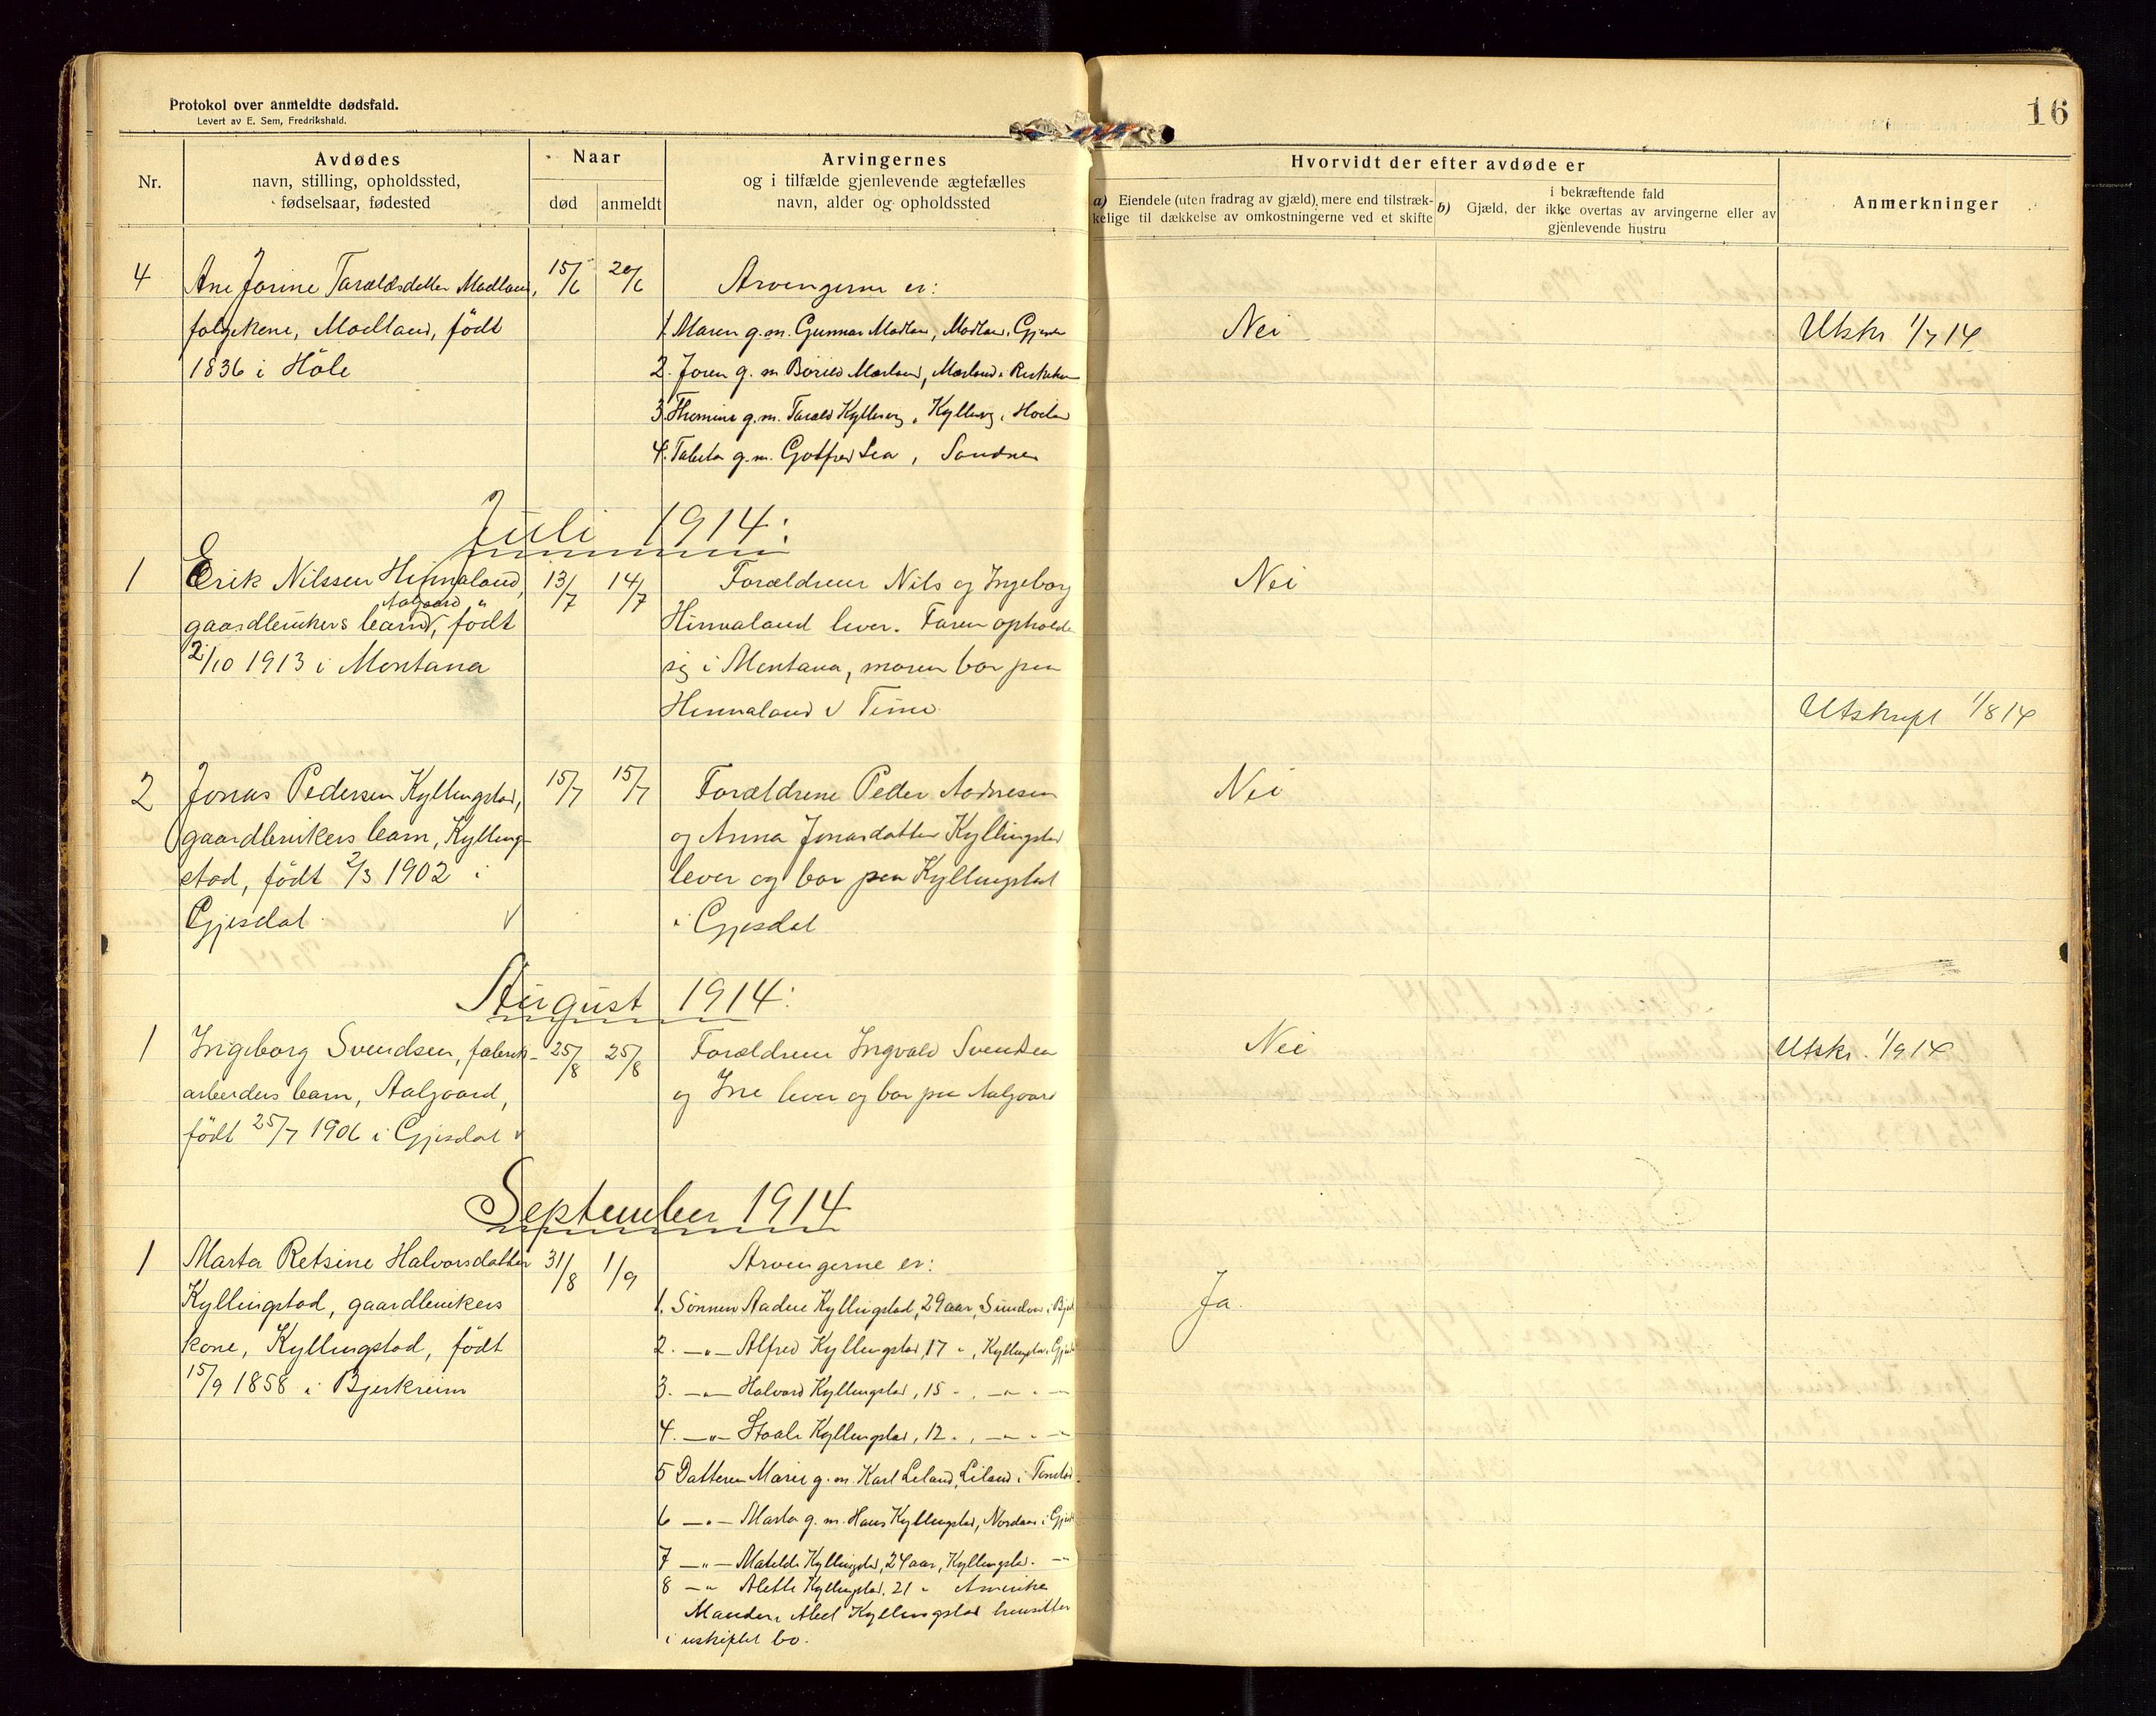 Protokol over anmeldte dødsfald.
Levert av E. Sem, Fredrikshald.
16
Nr.
Avdødes
navn, stilling, opholdssted,
fødselsaar, fødested
Naar
død
anmeldt
Arvingernes
og i tilfælde gjenlevende ægtefælles
navn, alder og opholdssted
Hvorvidt der efter avdøde er
a) Eiendele (uten fradrag av gjæld) mere end tilstræk-
kelige til dækkelse av omkostningerne ved et skifte
i bekræftende fald
b) Gjæld, der ikke overtas av arvingerne eller av
gjenlevende hustru
Anmerkninger
4
Ane Jorine Taraldsdatter Madland,
folgekone, Madland, født
1836 i Höle
15/6
20/6
Arvingerne er:
1. Maren g.m. Gunnar Madlan, Madlan, Gjesda
2. Joren g. m
3. g.m. Tarald Kyllesvig,
4. Tabita g.m. Gotfred Lea, Sandnes
Nei
Utskr 1/7 14
Juli 1914:
1
Erik Nilssen Hinnaland,
Aalgaard
gaardbrukers barn, født
2/10 1913 i Montana
13/7
14/7
Forældrene Nils og Ingeborg
Hinnaland lever. Faren opholde
sig i Montana, moren bor paa
Hinnaland i Time
Nei
Utskrift 1/8 14
2
Jonas Pedersen Kyllingstad,
gaardbrukers barn, Kylling-
stad, født 2/3 1902 i
Gjesdal
15/7
15/7
Forældrene Peder Aadnesen
og Anna Jonasdatter Kyllingstad
lever og bor paa Kyllingstad
i Gjesdal
Nei
August 1914:
1
Ingeborg Svendsen, fabrik-
arbeiders barn, Aalgaard,
født 25/7 1906 i Gjesdal
25/8
25/8
Forældrene Ingvald Svendsen
og Ine lever og bor paa Aalgaard
Nei
Utskr. 1/9 14
September 1914
1
Marta Retsine Halvorsdatter
Kyllingstad, gaardbrukers
kone, Kyllingstad, født
15/9 1858 i Bjerkreim
31/8
1/9
Arvingerne er:
1. Sönnen Aadne Kyllingstad, 29 aar,
2. —"— Alfred Kyllingstad, 17 ", Kyllingstad,
3. —"— Halvard Kyllingstad, 15 ", —"—
4. —"— Staale Kyllingstad, 12 ", —"—
5 Datteren Marie g.m. Karl Leland, Leland i
6 —"— Marta g.m. Hans Kyllingstad,
7 —"— Matilde Kyllingstad, 24 aar, Kyllingstad. —
8 —"— Aletta Kyllingstad, 21 " Amerika
Manden Abel Kyllingstad hensitter
i uskiftet bo.
Ja